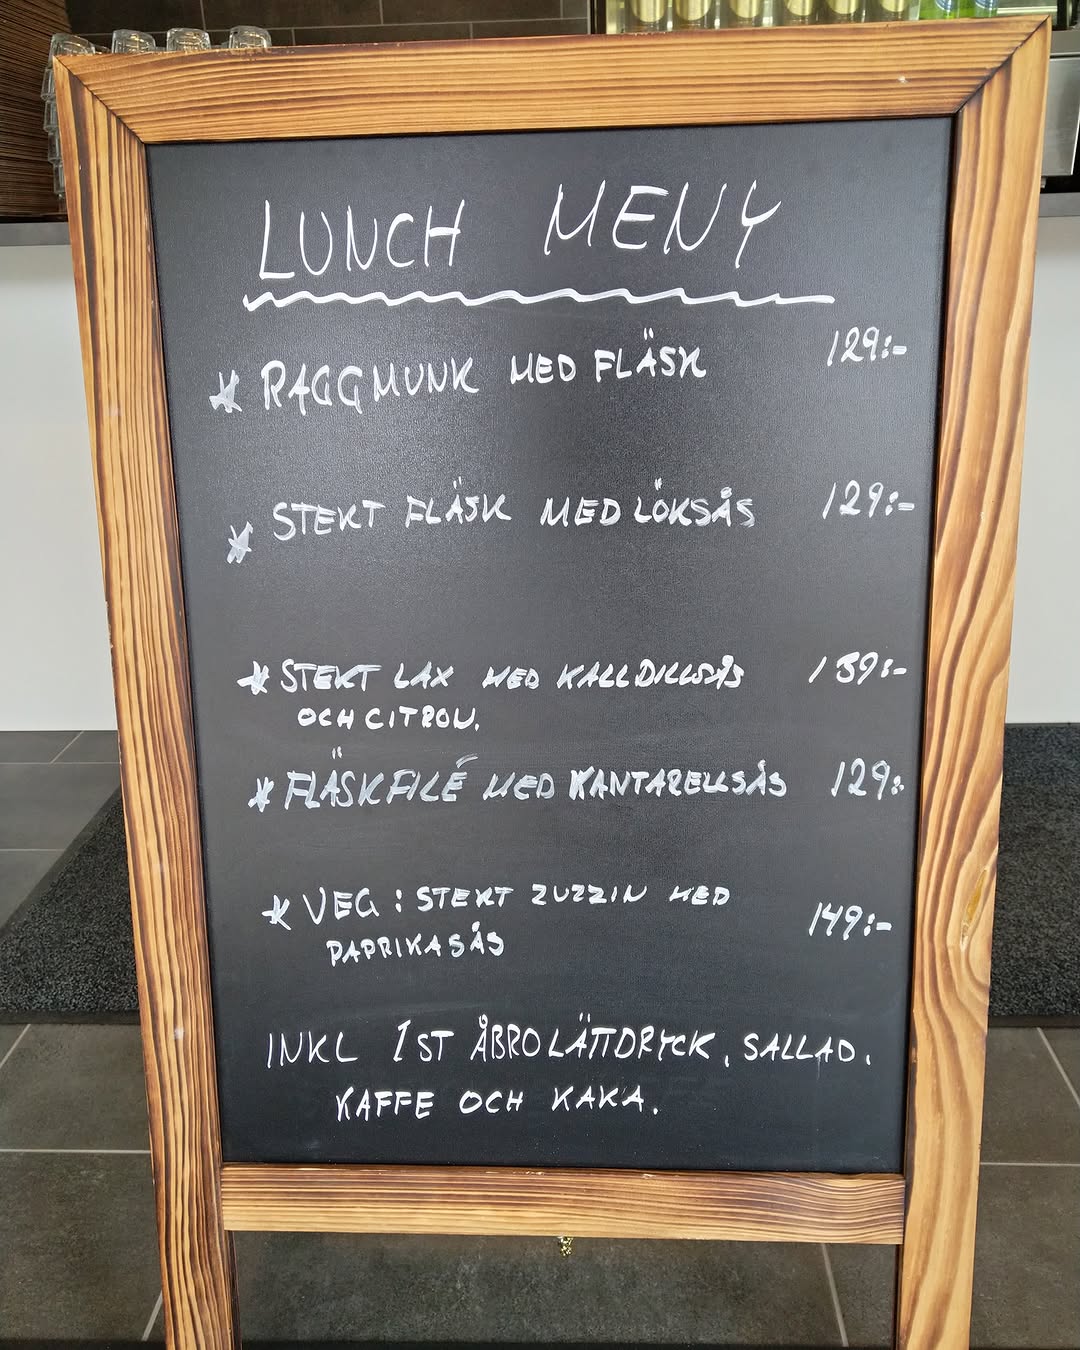 LUNCH MENY
* RAGGMUNK MED FLÄSK 129:-
* STEKT FLÄSK MED LÖKSÅS 129:-
* STEKT LAX MED KALLDILLSÅS 139:-
OCH CITRON.
* FLÄSKFILÉ MED KANTARELLSÅS 129:-
* VEG: STEKT ZUZZIN MED
PAPRIKASÅS 149:-
INKL 1 ST ÅBRO LÄTTDRYCK, SALLAD,
KAFFE OCH KAKA.